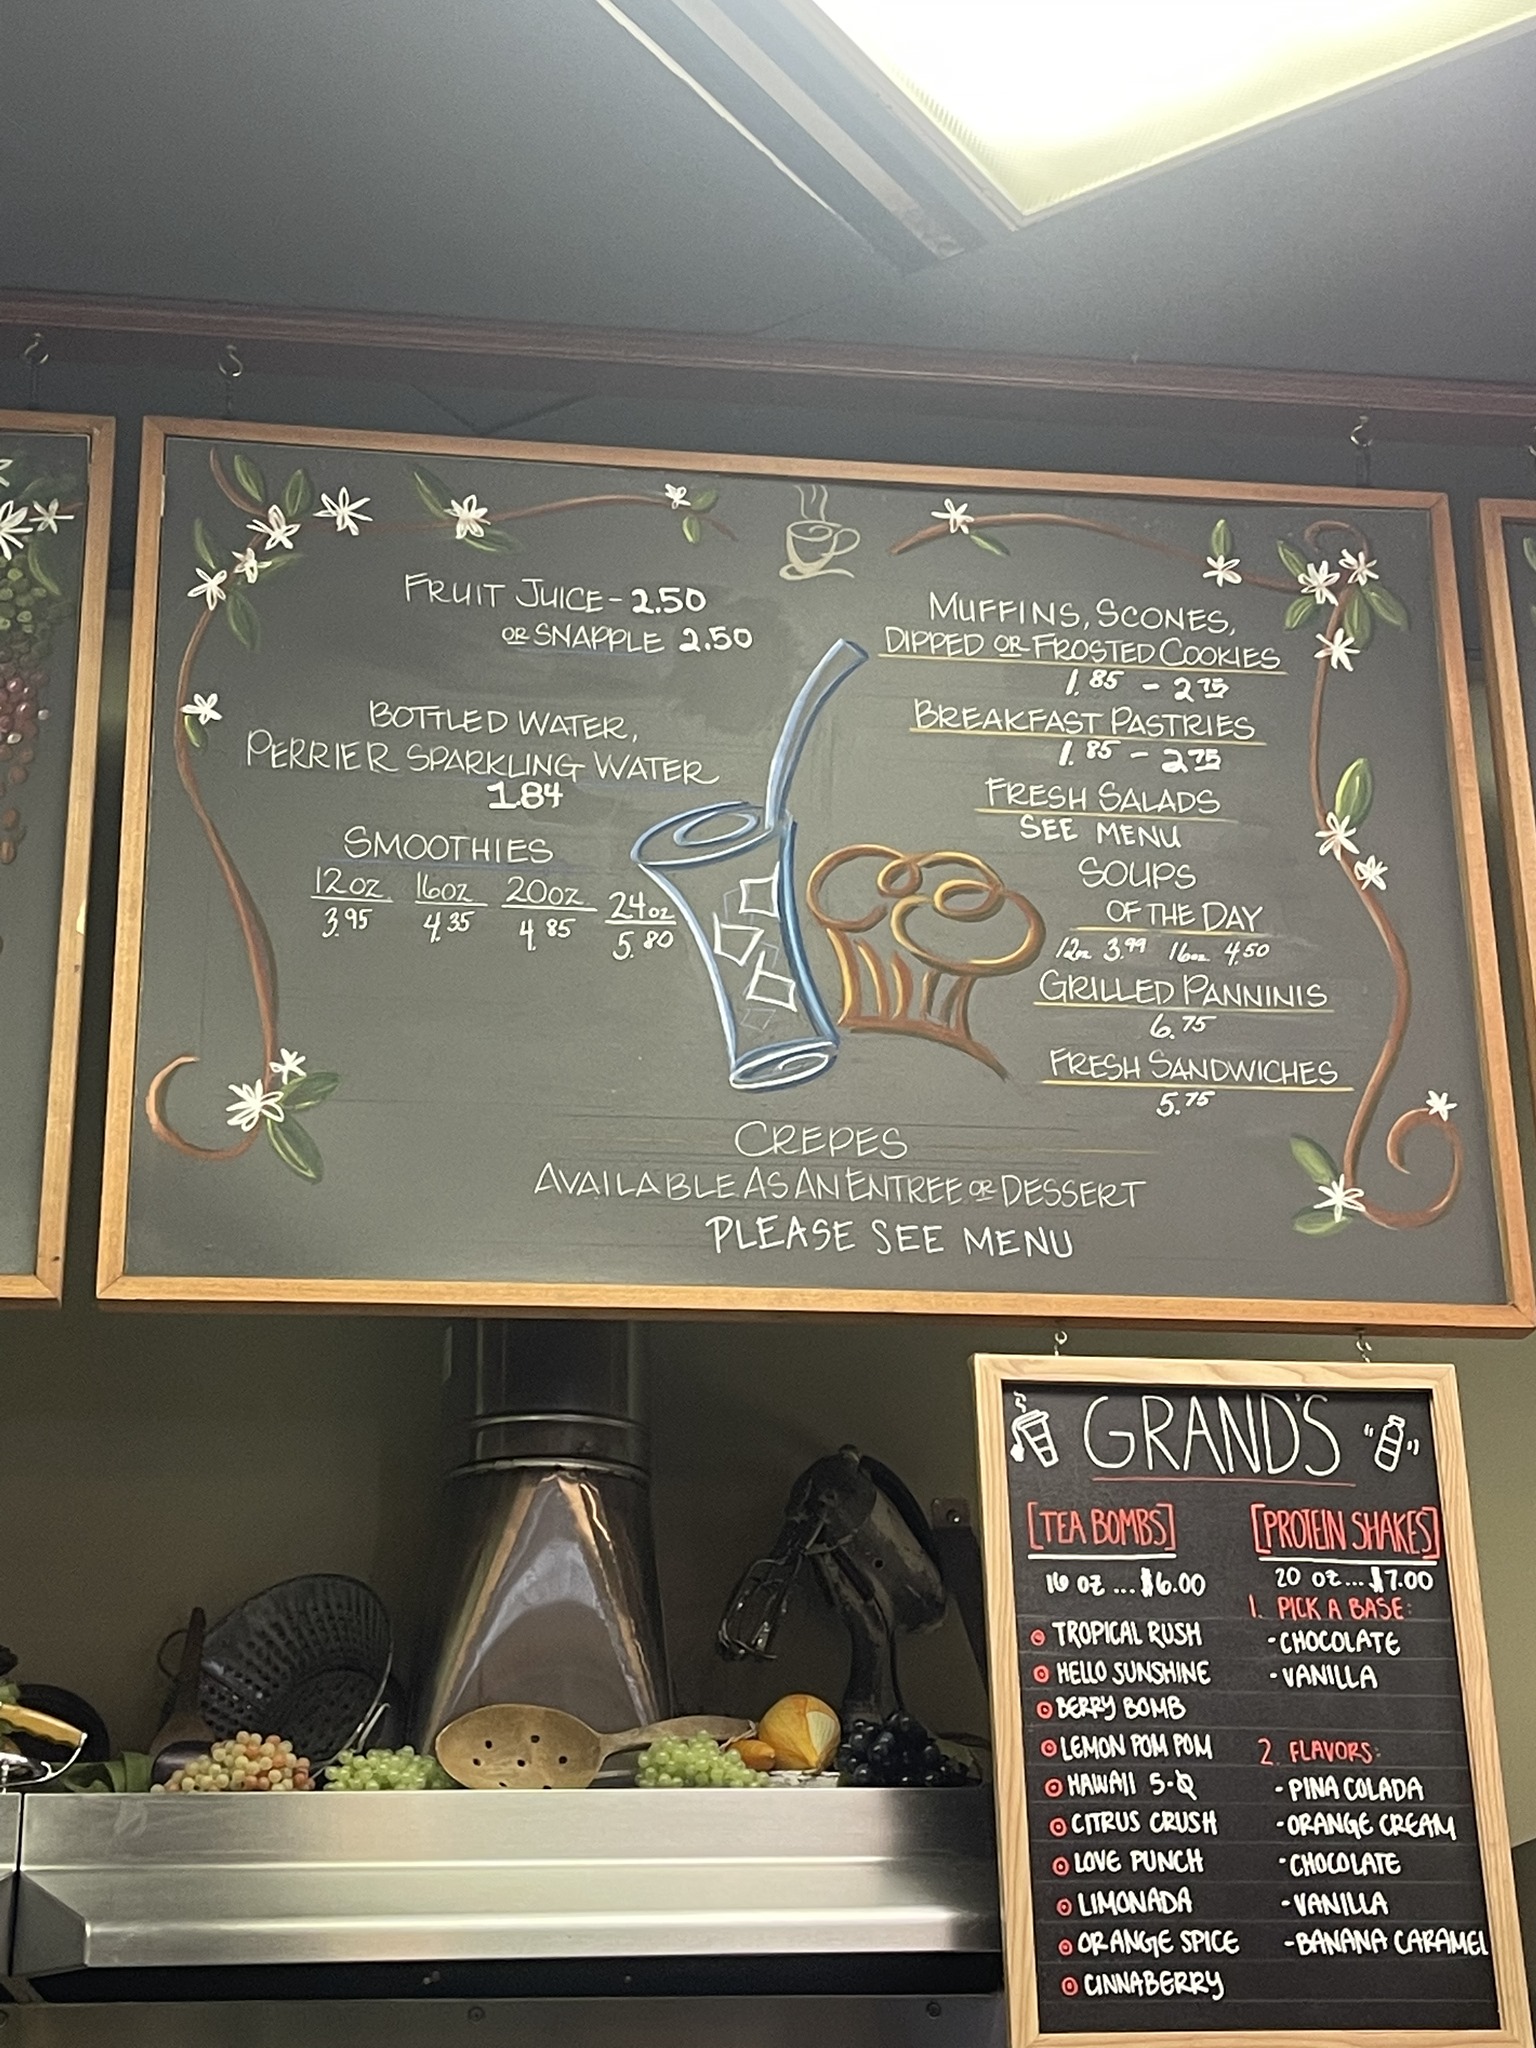 FRUIT JUICE - 2.50
OR SNAPPLE 2.50
BOTTLED WATER,
PERRIER SPARKLING WATER
1.84
SMOOTHIES
12OZ 16OZ 20OZ 24OZ
3.95 4.35 4.85 5.80
MUFFINS, SCONES,
DIPPED OR FROSTED COOKIES
1.85 - 2.75
BREAKFAST PASTRIES
1.85 - 2.75
FRESH SALADS
SEE MENU
SOUPS
OF THE DAY
12oz 3.99 16oz 4.50
GRILLED PANNINIS
6.75
FRESH SANDWICHES
5.75
CREPES
AVAILABLE AS AN ENTREE OR DESSERT
PLEASE SEE MENU
GRAND'S
[TEA BOMBS]
16 OZ ... $6.00
TROPICAL RUSH
HELLO SUNSHINE
BERRY BOMB
LEMON POM POM
HAWAII 5-0
CITRUS CRUSH
LOVE PUNCH
LIMONADA
ORANGE SPICE
CINNABERRY
[PROTEIN SHAKES]
20 OZ... $7.00
1. PICK A BASE:
- CHOCOLATE
- VANILLA
2. FLAVORS:
- PINA COLADA
- ORANGE CREAM
- CHOCOLATE
- VANILLA
- BANANA CARAMEL